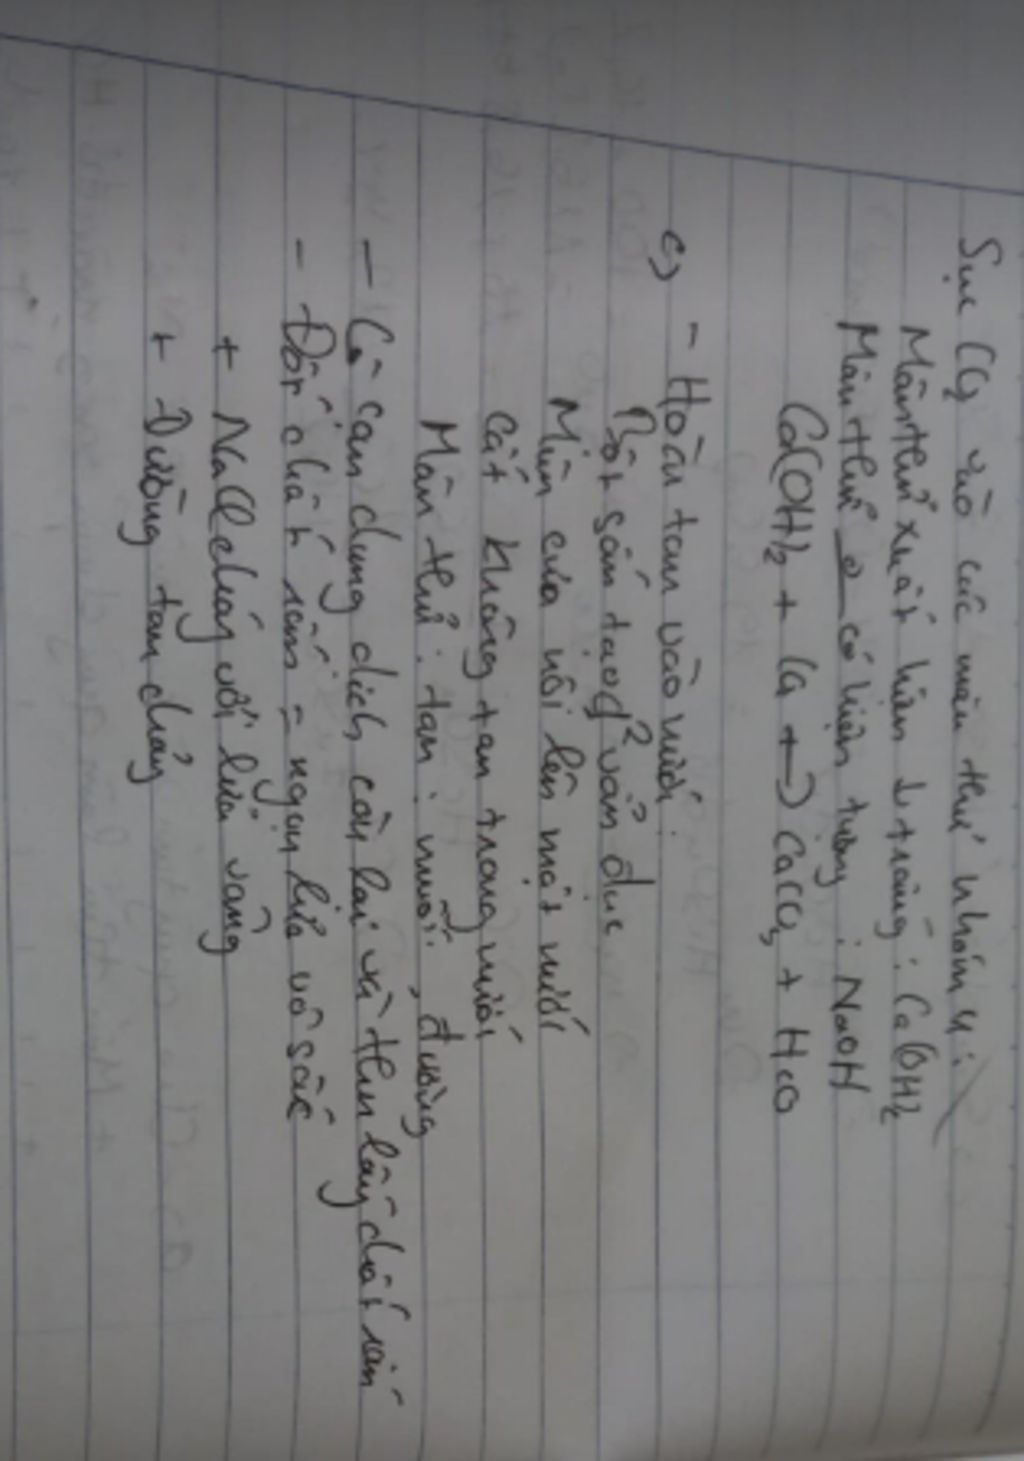 Sục CO2 vào các mẫu thử nhóm II:
Mẫu thử xuất hiện ↓ trắng: Ca(OH)2
Mẫu thử có hiện tượng: NaOH
Ca(OH)2 + → CaCO3 + H2O
c) - Hoàn tan vào nước:
Bột sắn tạo vẩn đục
Mùn cưa nổi lên mặt nước
Cát không tan trong nước
Mẫu thử: tan: muối, đường
- Cô cạn dung dịch còn lại và thu lấy chất rắn
- Đốt chất rắn = ngọn lửa vô sắc
+ NaCl cháy với lửa vàng
+ Đường tan chảy